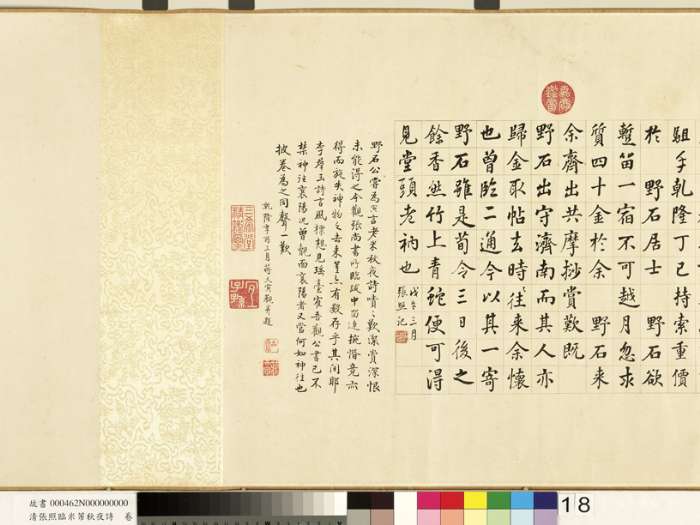 駔乎乾隆丁巳持索重價
於野石居士野石欲
蹔留一宿不可越月忽求
質四十金於余野石来
余齋出共摩挲賞歎既
野石出守濟南而其人亦
歸金取帖去時往来余懷
也曾臨二通今以其一寄
野石雖是荀令三日後之
餘香然竹上青蛇便可得
見堂頭老衲也
戊午三月
張照記
野石公嘗為寅言老米秋夜詩嘖嘖歎深賞深恨
未能得之今觀張尚書所臨跋中
得而旋失神物之去来豈亦有數存乎其間耶
李君玉詩言風標想見瑶臺寉吾觀公書已不
禁神往襄陽況曾觀面襄陽者又當何如神往也
披卷為之同聲一歎
故書 000462N000000000
清張照臨米芾秋夜詩 卷
18